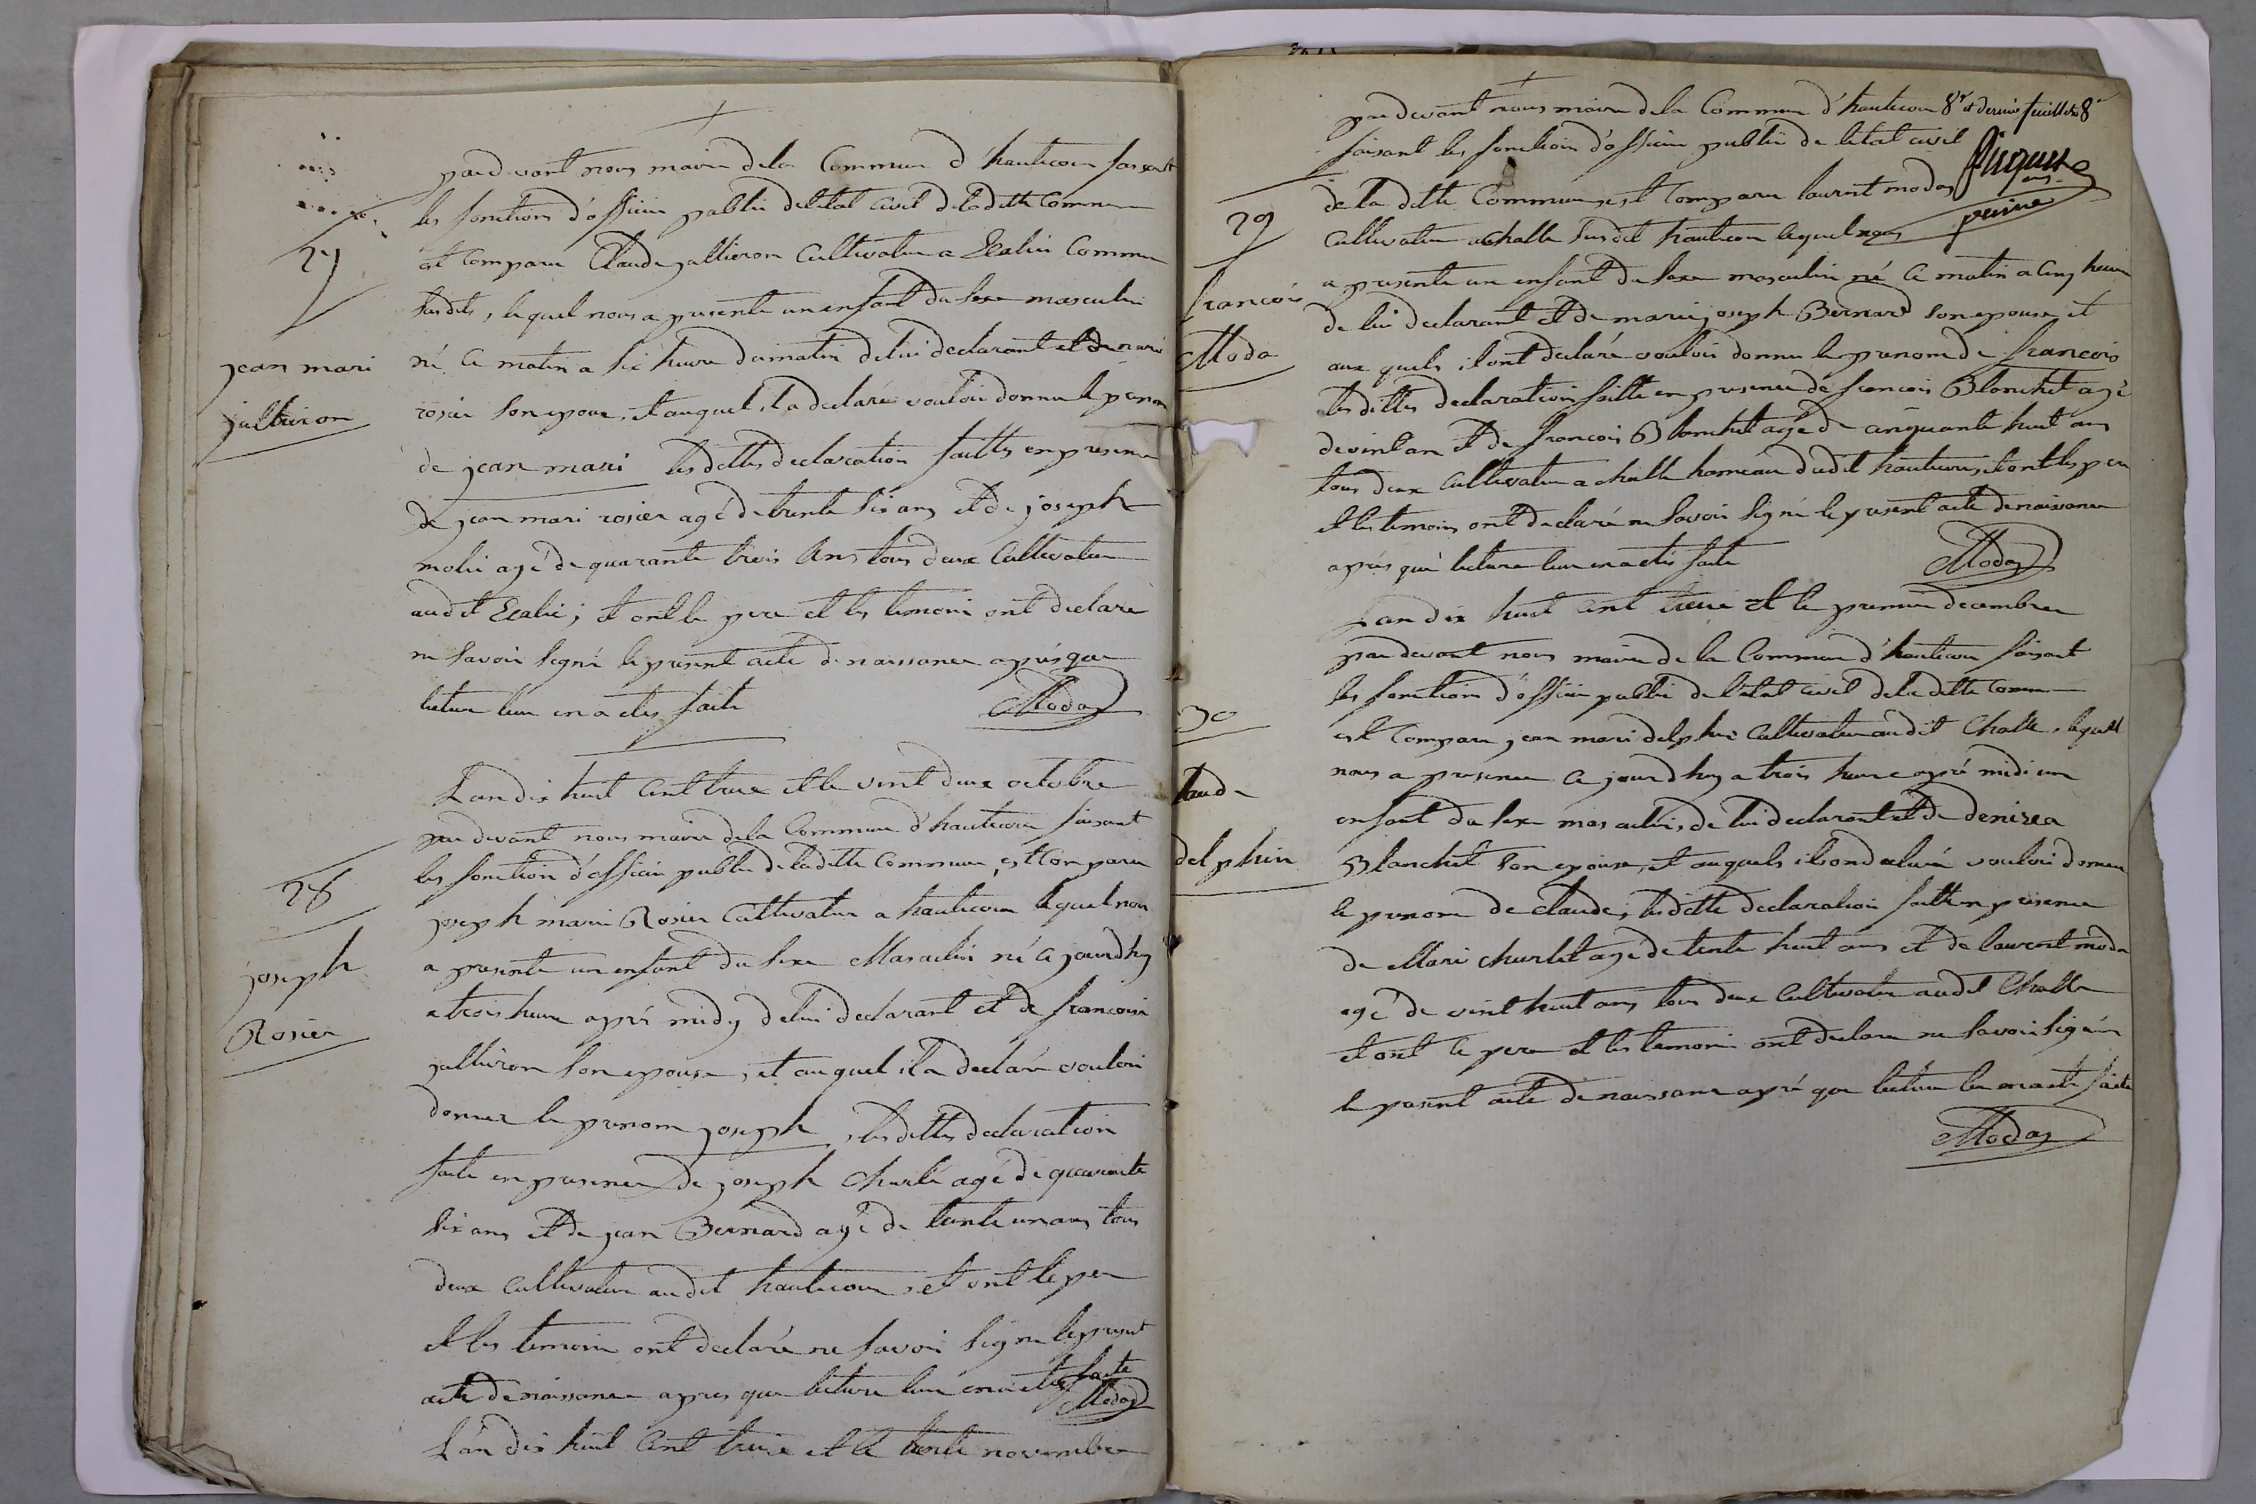 pardevant nous maire dela Commune d'hautecour faisant
les fonction d'officier public deletat civil deladitte Commune
est Comparu Claude jallieron Cultivateur a Commune
susdits, lequel nous a presente un enfant du sexe masculin
27
né ce matin a six heure du matin delui declarant et de marie
jean mari
rosier son epouse, et auquel il a declaré vouloir donner le prenom
de jean mari les dittes declaration faittes en presence
de jean mari rosier agé de trente six ans et de joseph
molié agé de quarante trois Ans tous deux Cultivateur
audit ; et ont le pere et les temoin ont declaré
ne savoir signé le present acte de naissance aprésque
lecture leur en a etés faite Moda
L'an dix huit Cent treize et le vint deux octobre
par devant nous maire dela Commune d'hautecour faisant
les fonction d'officier public deladitte Commune, est Comparu
28
joseph marie Rosier Cultivateur a hautecour lequel nou
a presente un enfant du sexe Masculin né ce jourdhuy
joseph
a trois heure aprés midy delui declarant et de francoise
Rosier
jallieron son epouse, et auquel il a declaré vouloir
donner le prenom joseph, les dittes declaration
faite en presence de joseph Charlé agé de quarante
six ans et de jean Bernard agé de trente un ans tous
deux Cultivateur audit hautecour, et ont le pere
et les temoin ont declaré ne savoir signe le present
acte de naissance apres que lecture leur en a etés faite
Moda
L'an dix huit Cent treize et le trente novembre
par devant nous maire dela Commune d'hautecour 8r et dernier feuillet 8
faisant les fonction d'officier public de letat civil
29
de la ditte Commune, est Comparu laurent moda
Cultivateur a Challe susdit hautecour lequel nous
a presente un enfant du sexe masculin né ce matin a cinq heure
francois
Moda
de lui declarant et de marie joseph Bernard son epouse, et
aux quels il ont declaré vouloir donner le prenom de francois
les dittes declaration faitte en presence de francois Blanchet agé
de vint an et de francois Blanchet agé de cinquante huit ans
tous deux Cultivateur a challe hameau dudit hautecour, et ont le pere
et les temoins ont declaré ne savoir signé le present acte de naissance
aprés que lecture leur en a etés faite Moda
L'an dix huit Cent treize et le premier decembre
par devant nous maire de la Commune d'hautecour faisant
les fonction d'officier public de l'etat civil dela ditte Comune
30
est Comparu jean mari delphin Cultivateur audit Challe, lequel
nous a presence ce jourdhuy a trois heure apré midi un
laude
enfant du sexe masculin, de lui declarant et de deniza
delphin
Blanchet son epouse, et auquels ils on declaré vouloir donner
le prenom de claude, les ditte declaration faitte en presence
de Mari Charlet agé de tente huit ans et de laurent moda
agé de vint huit ans tous deux Cultivateur audit Challe
et ont le pere et les temoin ont declaré ne savoir signér
le present acte de naissance apré que lecture leur en a eté faite
Moda